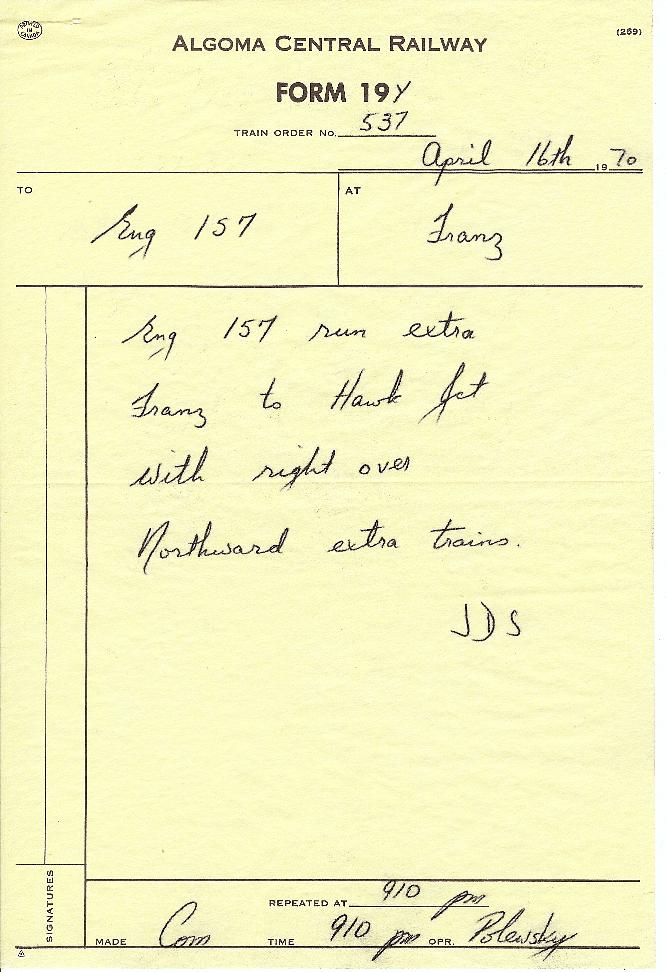 PRINTED IN CANADA
(269)
ALGOMA CENTRAL RAILWAY
FORM 19Y
TRAIN ORDER No. 537
April 16th 1970
TO
AT
Eng 157
Franz
Eng 157 run extra
Franz to Hawk Jct
with right over
Northward extra trains.
JDS
SIGNATURES
REPEATED AT 910 pm
MADE Com TIME 910 pm OPR. Polewsky